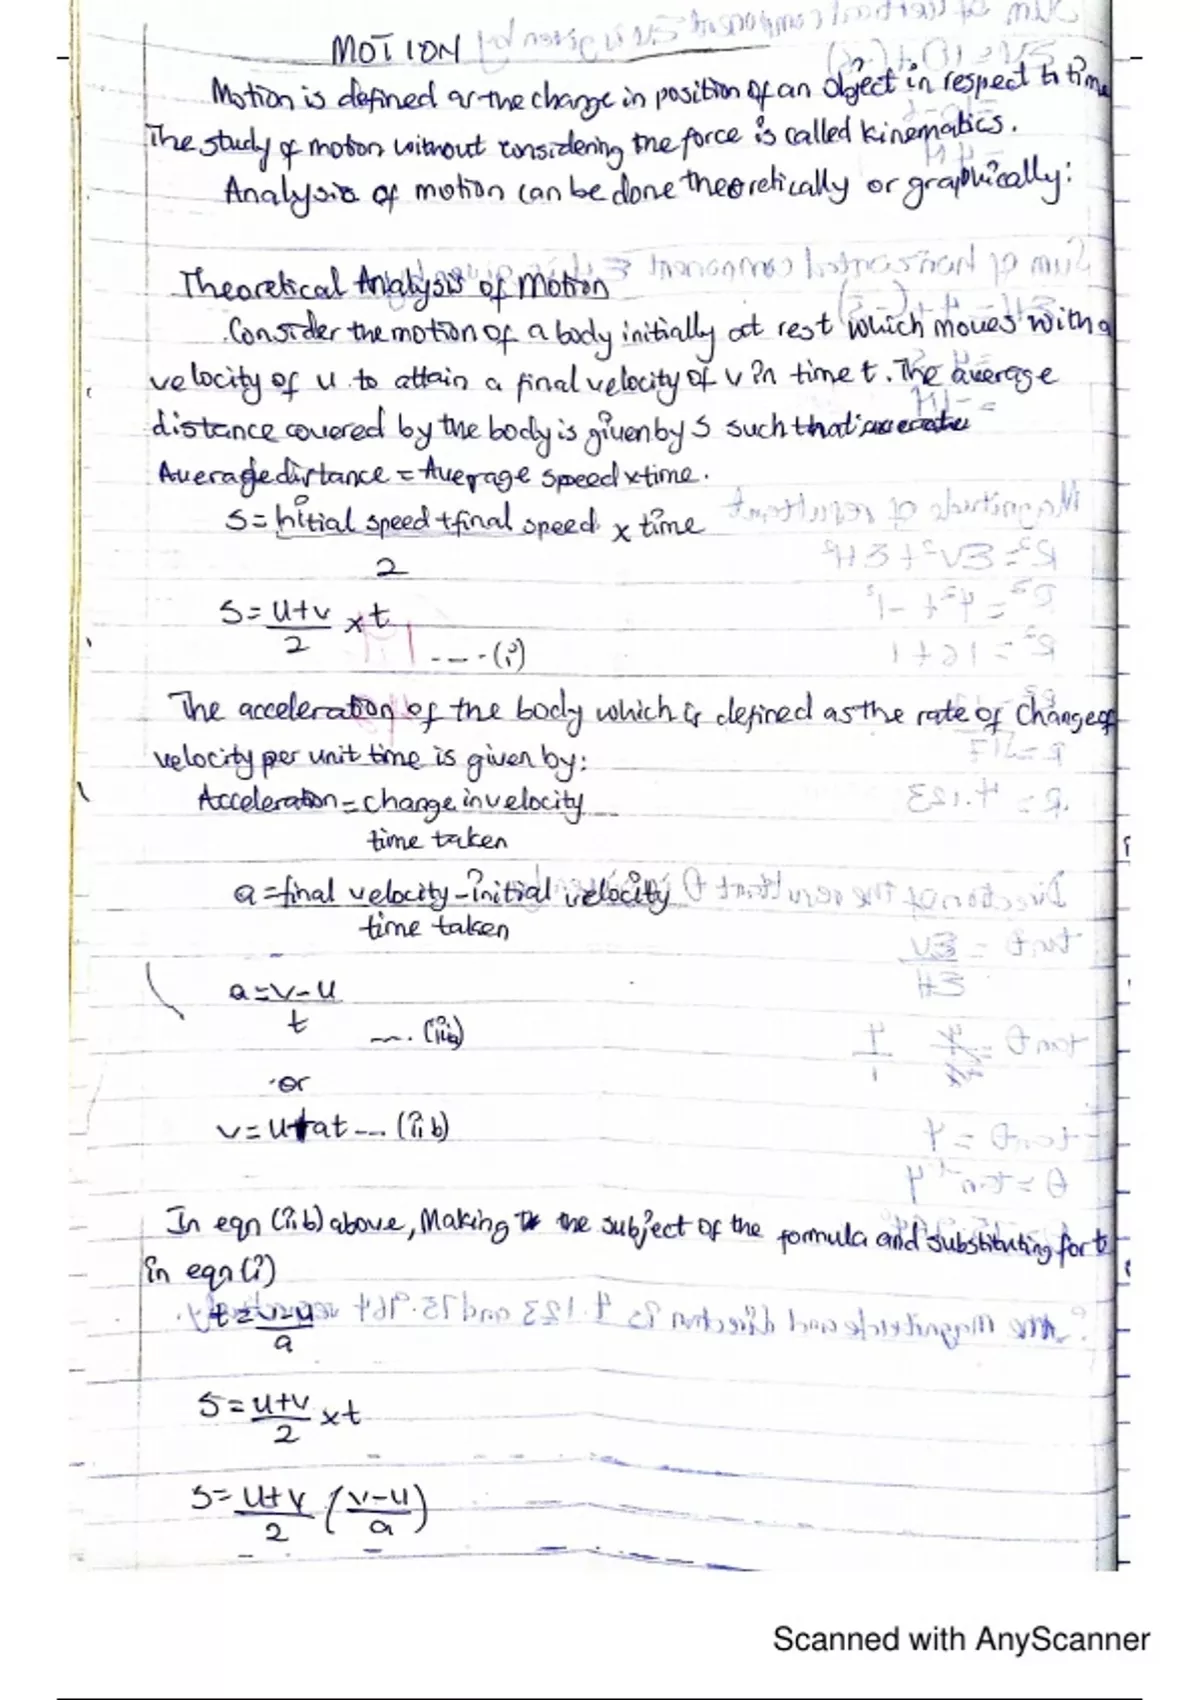 MOTION
Motion is defined as the change in position of an object in respect to time
The study of motion without considering the force is called kinematics.
Analysis of motion can be done theoretically or graphically:
Theoretical Analysis of Motion
Consider the motion of a body initially at rest which moves with a
velocity of u to attain a final velocity of v in time t. The average
distance covered by the body is given by S such that
Average distance = Average speed x time.
S = initial speed + final speed x time
2
S = u+v x t
2
---- (i)
The acceleration of the body which is defined as the rate of change of
velocity per unit time is given by:
Acceleration = change in velocity
time taken
a = final velocity - initial velocity
time taken
a = v - u
t
.... (iia)
or
v = u + at --- (iib)
In eqn (iib) above, Making the subject of the formula and substituting for t
in eqn (i)
t = v-u
a
S = u+v x t
2
S = u+v (v-u)
2 a
Scanned with AnyScanner